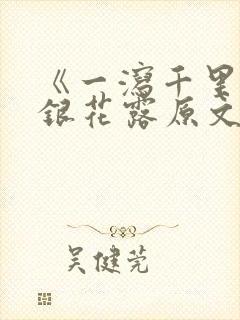 《一瀉千里
銀花露原文
吴健莞